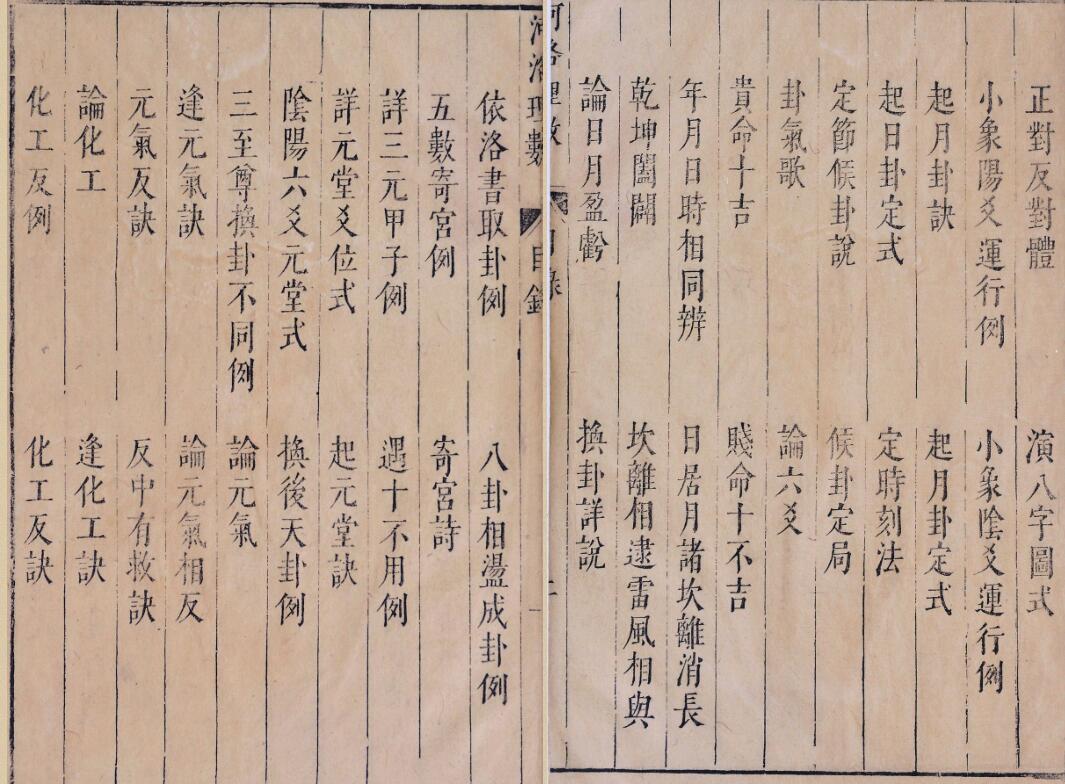 正對反對體　演八字圖式
小象陽爻運行例　小象陰爻運行例
起月卦訣　起月卦定式
起日卦定式　定時刻法
定節候卦說　候卦定局
卦氣歌　論六爻
貴命十吉　賤命十不吉
年月日時相同辨　日居月諸坎離消長
乾坤闔闢　坎離相逮雷風相與
論日月盈虧　換卦詳說
河洛理數　目錄
依洛書取卦例　八卦相盪成卦例
五數寄宮例　寄宮詩
詳三元甲子例　遇十不用例
詳元堂爻位式　起元堂訣
陰陽六爻元堂式　換後天卦例
三至尊換卦不同例　論元氣
逢元氣訣　論元氣相反
元氣反訣　反中有救訣
論化工　逢化工訣
化工反例　化工反訣